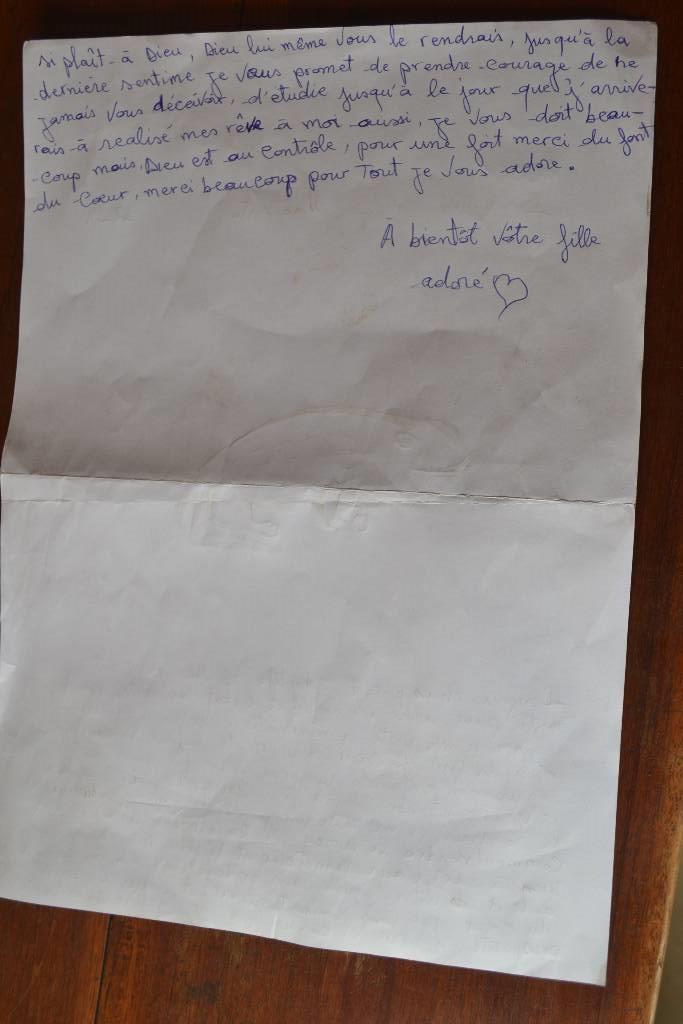 si plaît-à Dieu, Dieu lui même vous le rendrais, Jusqu'à la
dernière sentime je vous promet de prendre courage de ne
jamais vous décevoir, d'étudie jusqu'à le jour que j'arrive-
rais à realisé mes rêve à moi aussi, je vous doit beau-
-coup mais, Dieu est au contrôle, pour une foit merci du font
du Cœur, merci beaucoup pour Tout je vous adore.
À bientôt vôtre fille
adoré